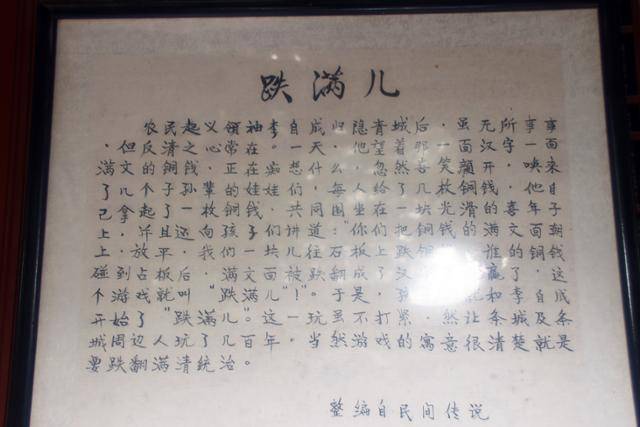 跌满儿
农民起义领袖李自成归隐青城后,虽无所事事
,但反清之心常在。一天,他望着一面汉字,一面
满文的铜钱,正在痴想什么,忽然喜笑颜开,唤来
了几个子孙辈的娃娃们,每给了几枚铜钱,他自
己拿起了一枚铜钱,共同围坐在一块光滑的
上,并且还向孩子们讲道:"你们把铜钱的满文面朝
上,放平,我们一块儿往石板上跌铜 谁的铜钱
碰到占板后,满文面儿被跌翻成了汉 赢了,这
个游戏就叫"跌满儿"!"。于是,孙 和李自成
开始了"跌满儿"。这一玩虽不打紧,然让条城及条
城周边人玩了几百年,当然游戏的寓意很清楚就是
要跌翻满清统治。
整编自民间传说